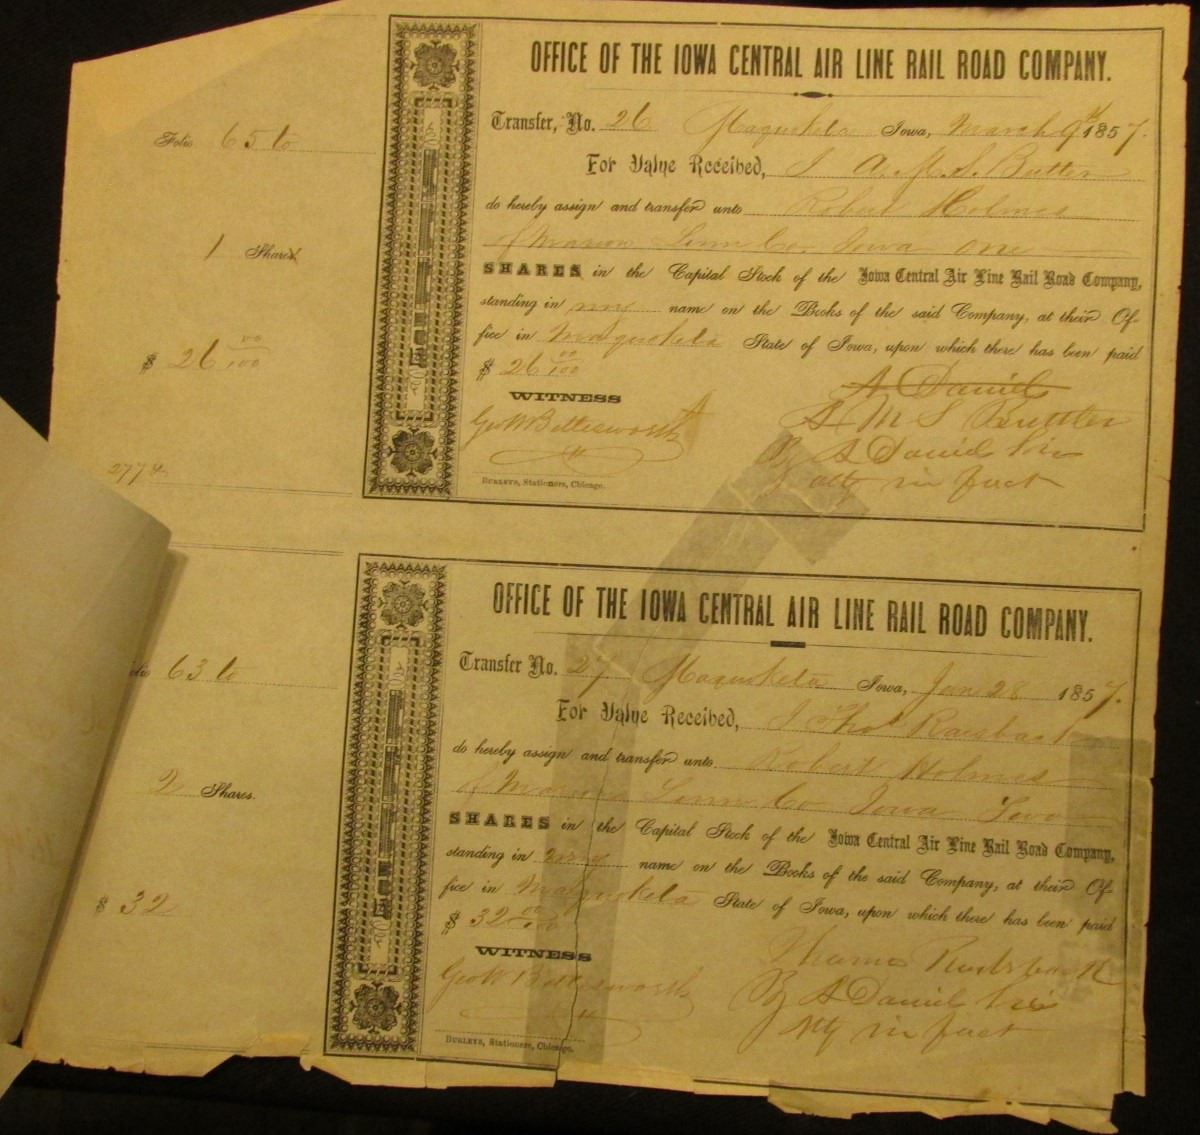 Folio 65 to
1 Shares
$ 26 00/100
2774
OFFICE OF THE IOWA CENTRAL AIR LINE RAIL ROAD COMPANY.
Transfer, No. 26 Maquoketa Iowa, March 9th 1857.
For Value Received, I A. M. S. Butler
do hereby assign and transfer unto Robert Holmes
of Marion Linn Co. Iowa one
SHARES in the Capital Stock of the Iowa Central Air Line Rail Road Company,
standing in my name on the Books of the said Company, at their Of-
fice in Maquoketa State of Iowa, upon which there has been paid
$ 26 00/100
A Daniels
WITNESS
A M S Buttler
Geo W Bettesworth
By A Daniel
atty in fact
Burleys, Stationers, Chicago.
Folio 63 to
2 Shares.
$ 32
OFFICE OF THE IOWA CENTRAL AIR LINE RAIL ROAD COMPANY.
Transfer No. 27 Maquoketa Iowa, Jan 28 1857.
For Value Received, I Thos
do hereby assign and transfer unto Robert Holmes
of Marion Linn Co Iowa Two
SHARES in the Capital Stock of the Iowa Central Air Line Rail Road Company,
standing in my name on the Books of the said Company, at their Of-
fice in Maquoketa State of Iowa, upon which there has been paid
$ 32 00/100
WITNESS
Geo W Bettesworth
By A Daniel
Atty in fact
Burleys, Stationers, Chicago.